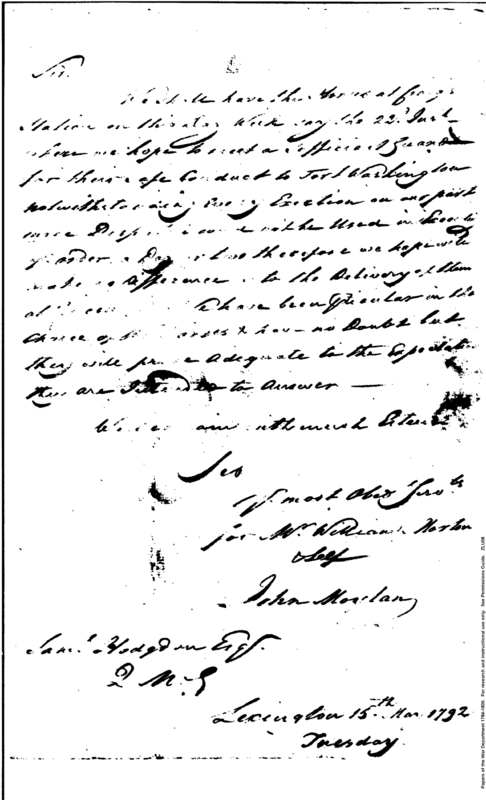 Sir.
We shall have the Horses at Georges
Station on this day Week say the 22d Inst
where we hope to meet a sufficient Guard
for their safe Conduct to Fort Washington
notwithstanding every Exertion on our part
Used in
under a Day or two therefore we hope will
make no difference to the Delivery of them
at have been particular in the
choice of Horses & have no Doubt but
they will prove Adequate to the
they are Intended to Answer —
We with much Esteem
Sir
Yr. most Obedt Servts
for Mr. William Morton
& Self
John
Saml. Hodgdon Esqr.
Q M G
Lexington 15th Mar 1792
Tuesday
Papers of the War Department 1784-1800. For research and instructional use only. See Permissions Guide. ZLU08